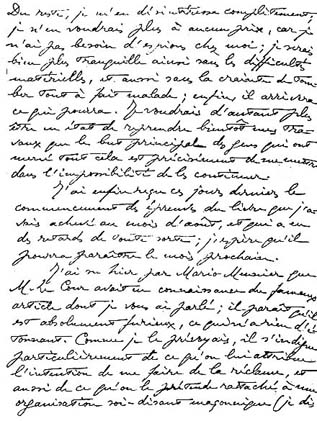 Du reste, je m'en désintéresse complètement,
je n'en voudrais plus à aucun prix, car je
n'ai pas besoin d'espions chez moi ; je serai
bien plus tranquille ainsi sans les difficultés
matérielles, et aussi sans la crainte de tom-
ber tout à fait malade ; enfin, il arrivera
ce qui pourra. Je voudrais d'autant plus
être en état de reprendre bientôt mes tra-
vaux que le but principal des gens qui ont
mené tout cela est précisément de me mettre
dans l'impossibilité de les continuer.
J'ai enfin reçu ces jours derniers le
commencement des épreuves du livre que j'a-
vais achevé au mois d'août, et qui a eu
des retards de toute sorte ; j'espère qu'il
pourra paraître le mois prochain.
J'ai su hier par Mario Meunier que
M. le Cour avait eu connaissance du fameux
article dont je vous ai parlé ; il paraît qu'il
est absolument furieux, ce qui n'a rien d'é-
tonnant. Comme je le prévoyais, il s'indigne
particulièrement de ce qu'on lui attribue
l'intention de me faire de la réclame, et
aussi de ce qu'on le prétende rattaché à une
organisation soi-disant maçonnique (je dis